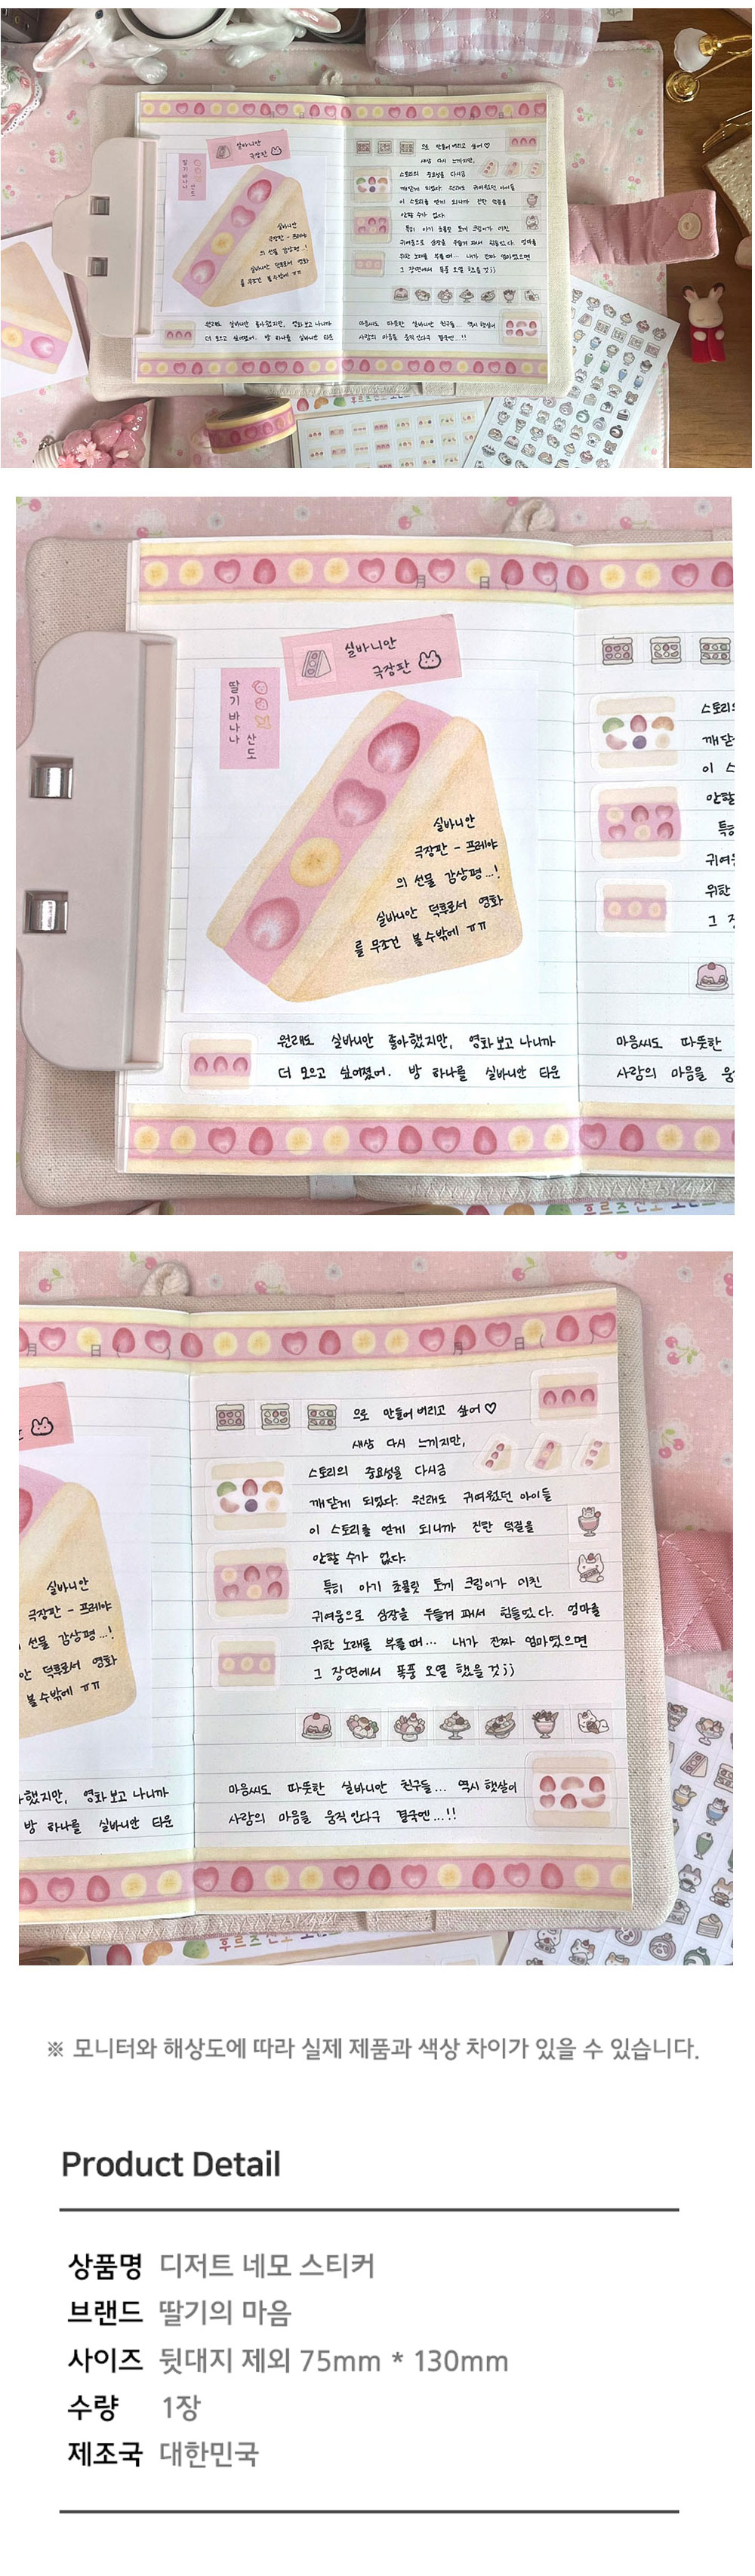 실바니안
극장판
딸기 바나나
산도
실바니안
극장판 - 프레야
의 선물 감상평...!
실바니안 덕후로서 영화
를 무조건 볼수밖에 ㅠㅠ
원래도 실바니안 좋아했지만, 영화보고 나니까
더 모으고 싶어졌어. 방 하나를 실바니안 타운
으로 만들어버리고 싶어♡
새삼 다시 느끼지만,
스토리의 중요성을 다시금
깨닫게 되었다. 원래도 귀여웠던 아이들
이 스토리를 얻게 되니까 진짜 덕질을
안할 수가 없다.
특히 아기 초콜릿 토끼 크림이가 미친
귀여움으로 심장을 두들겨 패서 힘들었다. 엄마를
위한 노래를 부를때... 내가 진짜 엄마였으면
그 장면에서 폭풍 오열 했을것;;
마음씨도 따뜻한 실바니안 친구들... 역시 햇살이
사람의 마음을 움직인다구 결국엔...!!
月 日 ( )
月 日 ( )
후르츠산도
※ 모니터와 해상도에 따라 실제 제품과 색상 차이가 있을 수 있습니다.
Product Detail
상품명 디저트 네모 스티커
브랜드 딸기의 마음
사이즈 뒷대지 제외 75mm * 130mm
수량 1장
제조국 대한민국